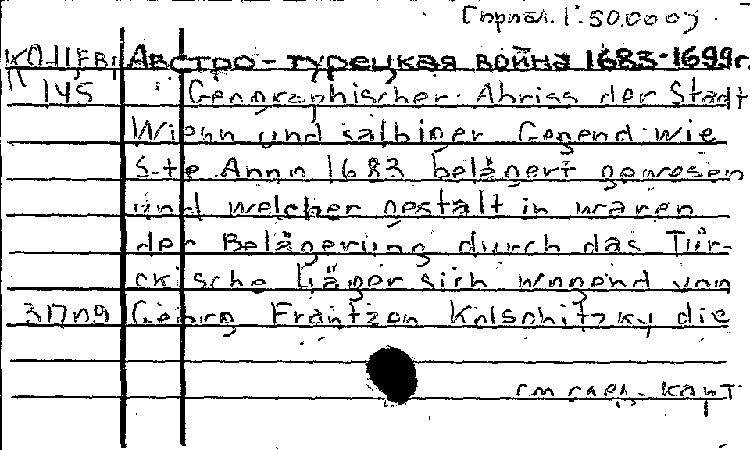 Гориз. 1:50.000
Коллекц Австро-турецкая война 1683-1699г.
К 145 Geographischer Abriss der Stadt
Wienn und salbiger Gegend wie
s-te Anno 1683 belägert gewesen
und welcher gestalt in waren
der Belägerung durch das Tür-
ckische Läger sich wagend von
31709 Georg Frantzen Kolschitzky die
см след. карт